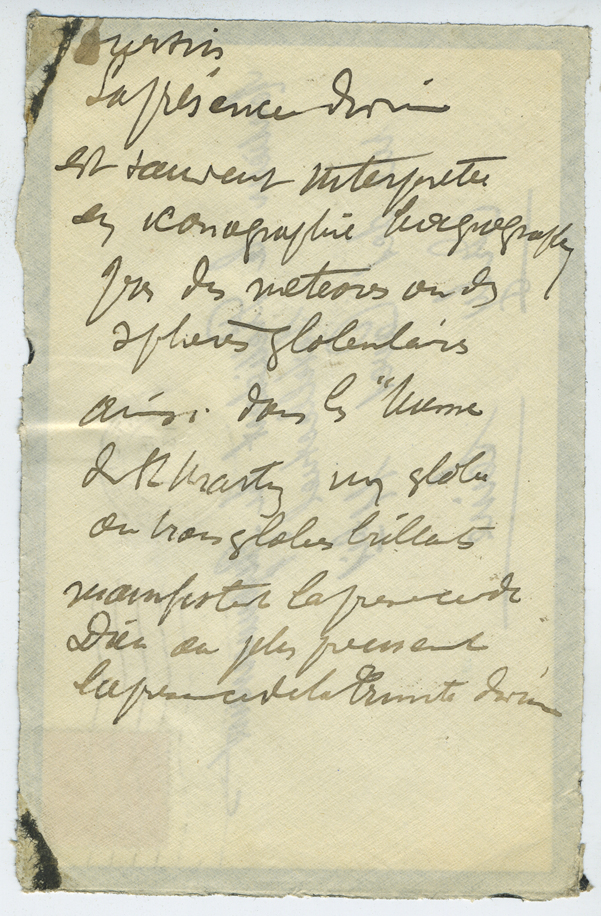 La présence divine
est souvent interpretée
en iconographie
par des meteores ou des
spheres globulaires
ainsi dans les "Messe
de St Martin un globe
ou trois globes brillants
manifestent la presence de
Dieu ou plus precisement
la presence de la Trinite divine